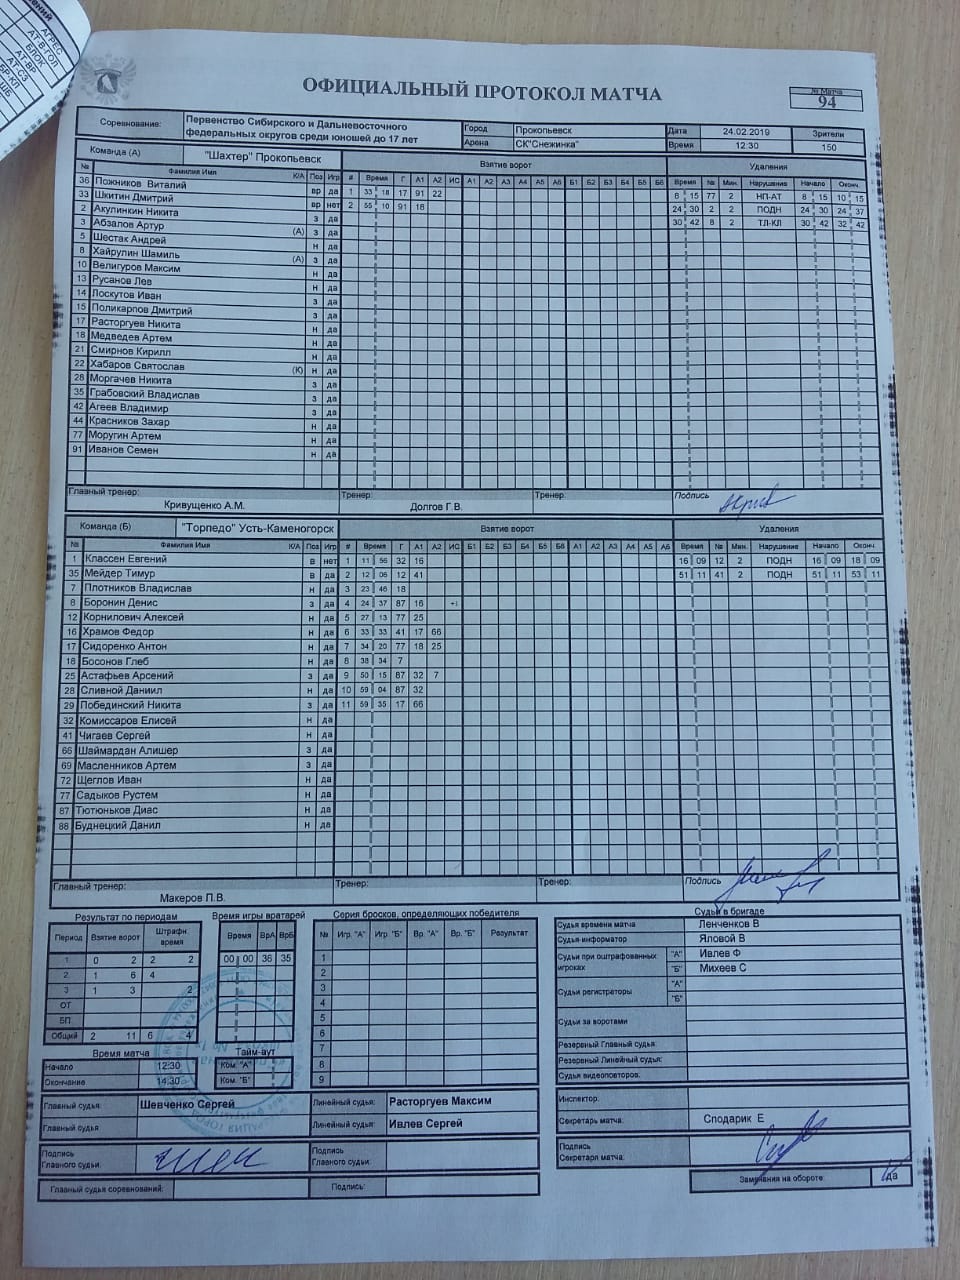 ОФИЦИАЛЬНЫЙ ПРОТОКОЛ МАТЧА
№ Матча
94
Соревнование: Первенство Сибирского и Дальневосточного федеральных округов среди юношей до 17 лет
Город Прокопьевск Дата 24.02.2019 Зрители
Арена СК"Снежинка" Время 12:30 150
Команда (А) "Шахтер" Прокопьевск Взятие ворот Удаления
№ Фамилия Имя К/А Поз Игр # Время Г А1 А2 ИС А1 А2 А3 А4 А5 А6 Б1 Б2 Б3 Б4 Б5 Б6 Время № Мин. Нарушение Начало Оконч.
36 Пожников Виталий вр да 1 33 18 17 91 22 8 15 77 2 НП-АТ 8 15 10 15
33 Шкитин Дмитрий вр нет 2 55 10 91 18 24 30 2 2 ПОДН 24 30 24 37
2 Акулинкин Никита з да 30 42 8 2 ТЛ-КЛ 30 42 32 42
3 Абзалов Артур (А) з да
5 Шестак Андрей н да
8 Хайрулин Шамиль (А) з да
10 Велигуров Максим н да
13 Русанов Лев н да
14 Лоскутов Иван з да
15 Поликарпов Дмитрий з да
17 Расторгуев Никита н да
18 Медведев Артем н да
21 Смирнов Кирилл н да
22 Хабаров Святослав (К) н да
28 Моргачев Никита з да
35 Грабовский Владислав з да
42 Агеев Владимир з да
44 Красников Захар н да
77 Моругин Артем н да
91 Иванов Семен н да
Главный тренер: Тренер: Тренер: Подпись
Кривущенко А.М. Долгов Г.В.
Команда (Б) "Торпедо" Усть-Каменогорск Взятие ворот Удаления
№ Фамилия Имя К/А Поз Игр # Время Г А1 А2 ИС Б1 Б2 Б3 Б4 Б5 Б6 А1 А2 А3 А4 А5 А6 Время № Мин. Нарушение Начало Оконч.
1 Классен Евгений в нет 1 11 56 32 16 16 09 12 2 ПОДН 16 09 18 09
35 Мейдер Тимур в да 2 12 06 12 41 51 11 41 2 ПОДН 51 11 53 11
7 Плотников Владислав н да 3 23 46 18
8 Боронин Денис з да 4 24 37 87 16 +1
12 Корнилович Алексей н да 5 27 13 77 25
16 Храмов Федор н да 6 33 33 41 17 66
17 Сидоренко Антон н да 7 34 20 77 18 25
18 Босонов Глеб н да 8 38 34 7
25 Астафьев Арсений з да 9 50 15 87 32 7
28 Сливной Даниил н да 10 59 04 87 32
29 Побединский Никита з да 11 59 35 17 66
32 Комиссаров Елисей н да
41 Чигаев Сергей н да
66 Шаймардан Алишер з да
69 Масленников Артем з да
72 Щеглов Иван н да
77 Садыков Рустем н да
87 Тютюньков Диас н да
88 Буднецкий Данил н да
Главный тренер: Тренер: Тренер: Подпись
Макеров П.В.
Результат по периодам
Период Взятие ворот Штрафн. время
1 0 2 2 2
2 1 6 4
3 1 3 2
ОТ
БП
Общий 2 11 6 4
Время игры вратарей
Время ВрА ВрБ
00 00 36 35
Серия бросков, определяющих победителя
№ Игр. "А" Игр. "Б" Вр. "А" Вр. "Б" Результат
1
2
3
4
5
6
7
8
9
Судьи в бригаде
Судья времени матча Ленченков В
Судья-информатор Яловой В
Судьи при оштрафованных игроках "А" Ивлев Ф
"Б" Михеев С
Судьи регистраторы "А"
"Б"
Судьи за воротами
Резервный Главный судья
Резервный Линейный судья:
Судьи видеоповторов:
Время матча
Начало 12:30
Окончание 14:30
Тайм-аут
Ком. "А"
Ком. "Б"
Главный судья: Шевченко Сергей Линейный судья: Расторгуев Максим
Главный судья Линейный судья: Ивлев Сергей
Инспектор:
Секретарь матча: Сподарик Е
Подпись Главного судьи: Подпись Главного судьи:
Подпись Секретаря матча:
Главный судья соревнований: Подпись:
Замечания на обороте да